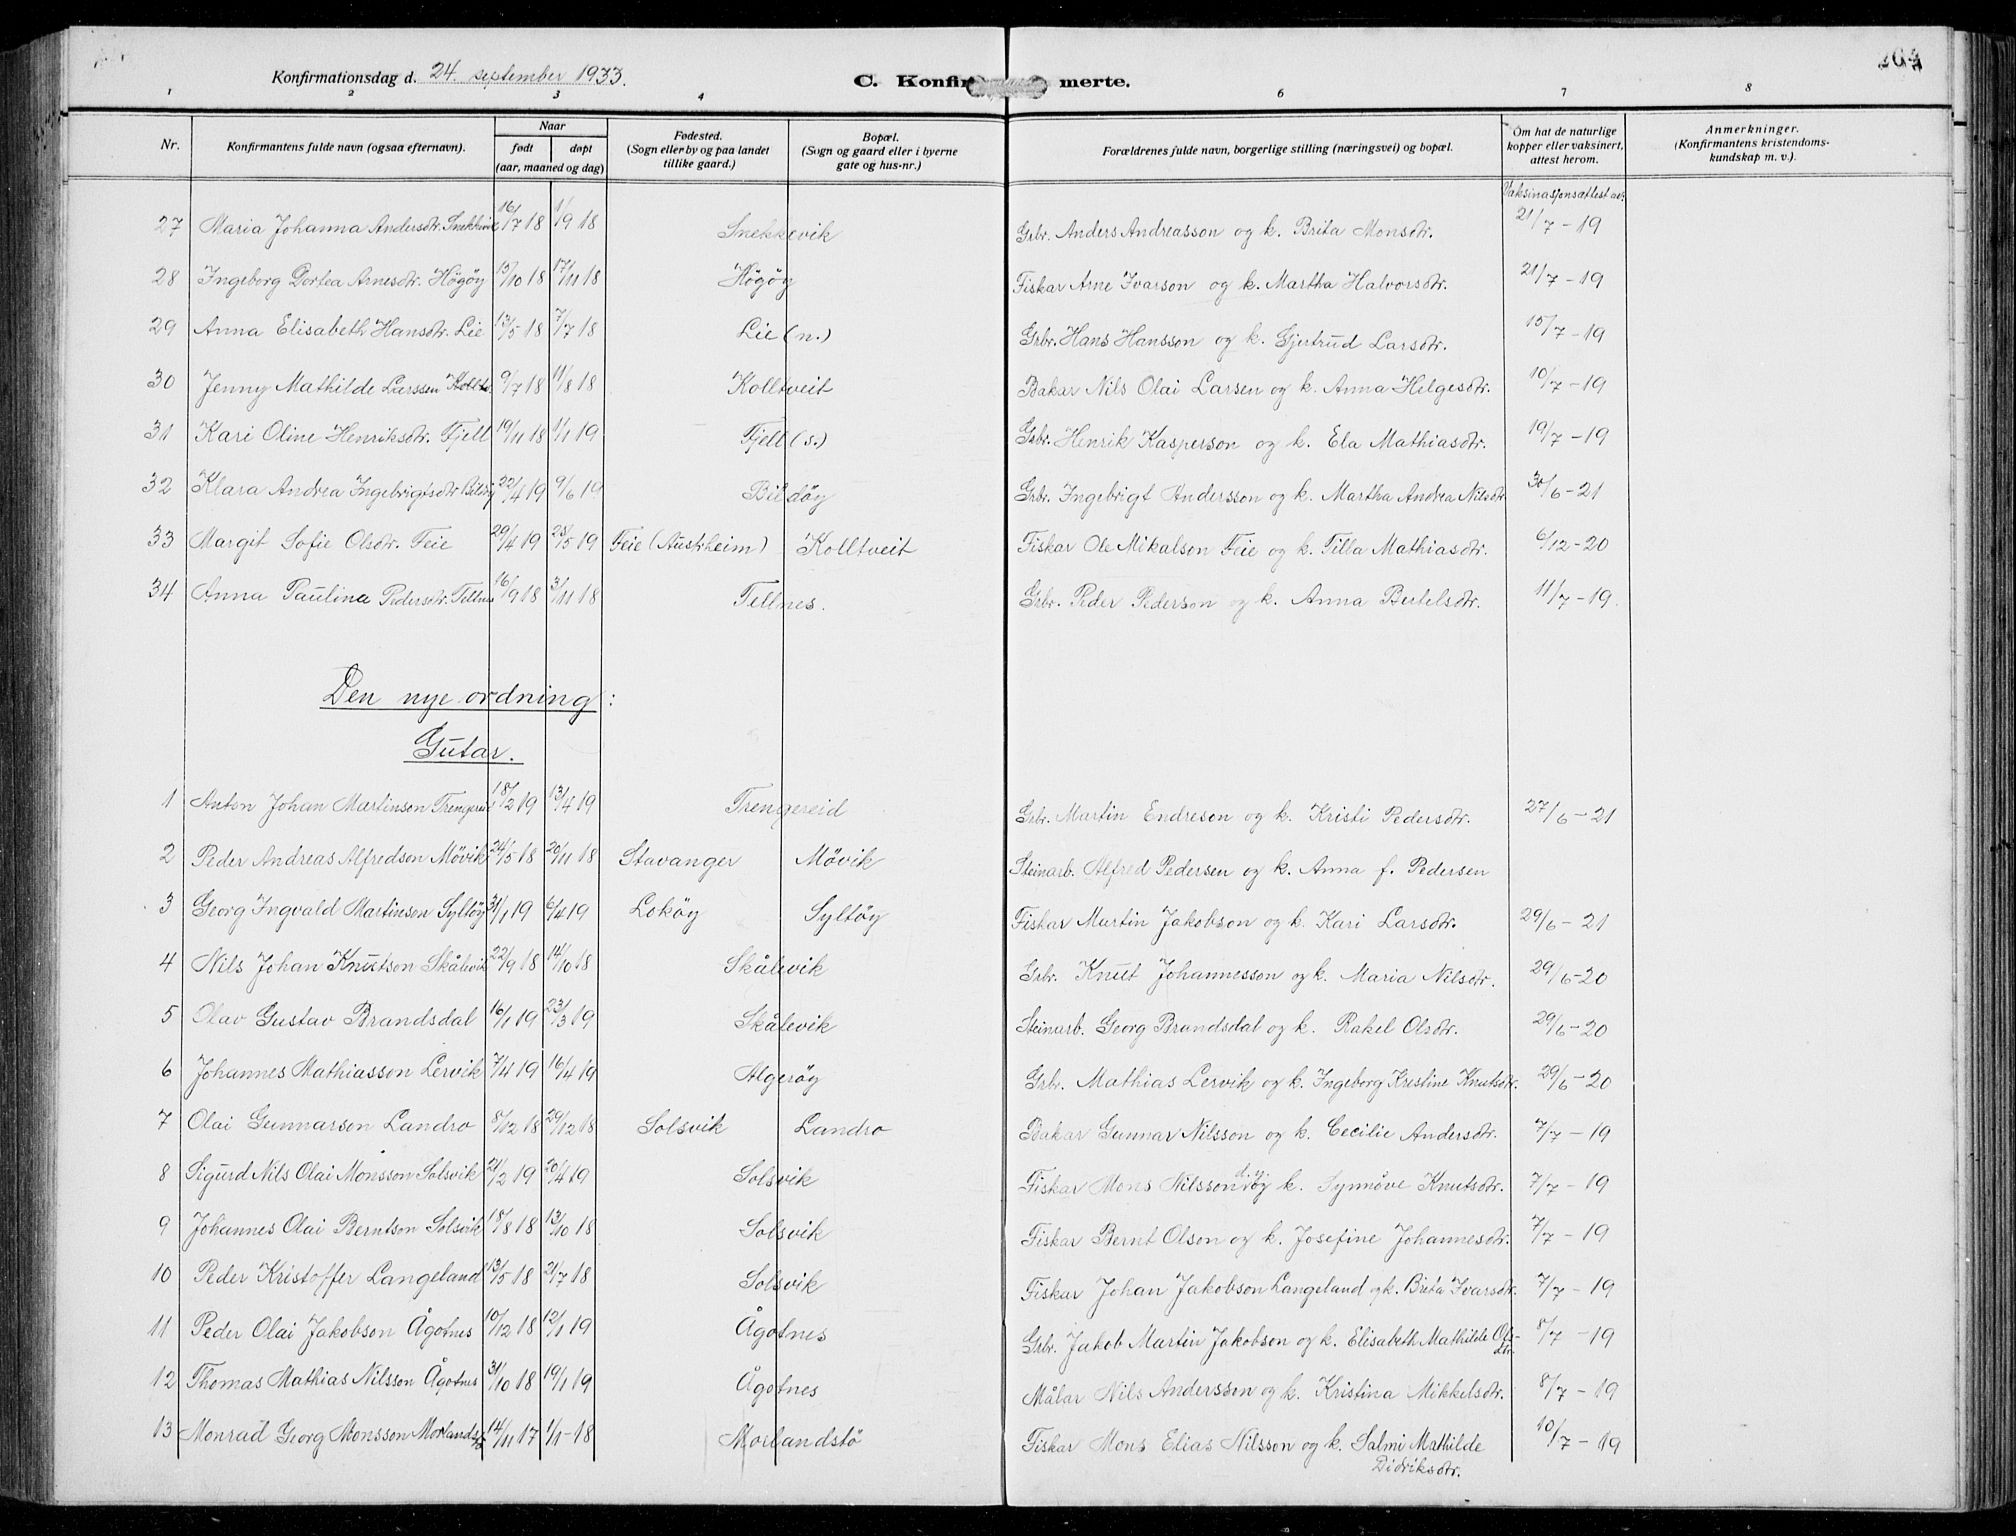 Konfirmationsdag d. 24. september 1933. C. Konfir merte. 204
1 2 3 4 6 7 8
Nr. Konfirmantens fulde navn (ogsaa efternavn). Naar født døpt (aar, maaned og dag) Fødested. (Sogn eller by og paa landet tillike gaard.) Bopæl. (Sogn og gaard eller i byerne gate og hus-nr.) Forældrenes fulde navn, borgerlige stilling (næringsvei) og bopæl. Om hat de naturlige kopper eller vaksinert, attest herom. Anmerkninger. (Konfirmantens kristendomskundskap m. v.).
Vaksinasjonsattest av:
27 Maria Johanna Andersdtr. Snekkevik 16/7 18 1/9 18 Snekkevik Grbr. Anders Andreasson og k. Brita Monsdtr. 21/7 - 19
28 Ingeborg Dortea Arnesdtr. Högöy 15/10 18 17/11 18 Högöy Fiskar Arne Ivarson og k. Martha Halvorsdtr. 21/7 - 19
29 Anna Elisabeth Hansdtr. Lie 13/5 18 7/7 18 Lie (n.) Grbr. Hans Hansson og k. Gjertrud Larsdtr. 15/7 - 19
30 Jenny Mathilde Larssen Kolltv. 9/7 18 11/8 18 Kolltveit Bakar Nils Olai Larsen og k. Anna Helgesdtr. 10/7 - 19
31 Kari Oline Henriksdtr. Fjell 19/11 18 1/1 19 Fjell (s.) Grbr. Henrik Kasperson og k. Ela Mathiasdtr. 19/7 - 19
32 Klara Andrea Ingebrigtsdtr Bildöy 22/4 19 9/6 19 Bildöy Grbr. Ingebrigt Andersson og k. Martha Andrea Nilsdtr 30/6 - 21
33 Margit Sofie Olsdtr. Feie 29/4 19 28/5 19 Feie (Austrheim) Kolltveit Fiskar Ole Mikalson Feie og k. Tilla Mathiasdtr. 6/12 - 20
34 Anna Paulina Pedersdtr. Tellnes 16/9 18 3/11 18 Tellnes. Grbr. Peder Pederson og k. Anna Bertelsdtr. 11/7 - 19.
Den nye ordning:
Gutar.
1 Anton Johan Martinson Trengereid 18/2 19 13/4 19 Trengereid Grbr. Martin Endreson og k. Kristi Pedersdtr. 27/6 - 21
2 Peder Andreas Alfredson Mövik 24/5 18 20/11 18 Stavanger Mövik Steinarb. Alfred Pedersen og k. Anna f. Pedersen
3 Georg Ingvald Martinson Syltöy 31/1 19 6/4 19 Lokøy Syltöy Fiskar Martin Jakobson og k. Kari Larsdtr. 29/6 - 21
4 Nils Johan Knutson Skålevik 22/9 18 14/10 18 Skålevik Grbr. Knut Johannesson og k. Maria Nilsdtr. 29/6 - 20
5 Olav Gustav Brandsdal 16/1 19 23/3 19 Skålevik Steinarb. Georg Brandsdal og k. Rakel Olsdtr. 29/6 - 20
6 Johannes Mathiasson Lervik 7/4 19 16/4 19 Algeröy Grbr. Mathias Lervik og k. Ingeborg Kristine Knutsdtr. 29/6 - 20
7 Olai Gunnarson Landro 8/12 18 29/12 18 Solsvik Landro Bakar Gunnar Nilsson og k. Cecilie Andersdtr. 7/7 - 19
8 Sigurd Nils Olai Monsson Solsvik 21/2 19 20/4 19 Solsvik Fiskar Mons Nilsson d.y. og k. Synnöve Knutsdtr. 7/7 - 19
9 Johannes Olai Berntson Solsvik 18/8 18 13/10 18 Solsvik Fiskar Bernt Olson og k. Josefine Johannesdtr. 7/7 - 19
10 Peder Kristoffer Langeland 13/5 18 21/7 18 Solsvik Fiskar Johan Jakobson Langeland og k. Brita Ivarsdtr. 7/7 - 19
11 Peder Olai Jakobson Ågotnes 10/12 18 12/1 19 Ågotnes Grbr. Jakob Martin Jakobson og k. Elisabeth Mathilde Ols-dtr. 8/7 - 19
12 Thomas Mathias Nilsson Ågotnes 31/10 18 19/1 19 Ågotnes Målar Nils Andersson og k. Kristina Mikkelsdtr. 8/7 - 19
13 Monrad Georg Monsson Morlandstö 14/11 17 1/1 - 18 Morlandstö Fiskar Mons Elias Nilsson og k. Salmi Mathilde Didriksdtr. 10/7 - 19